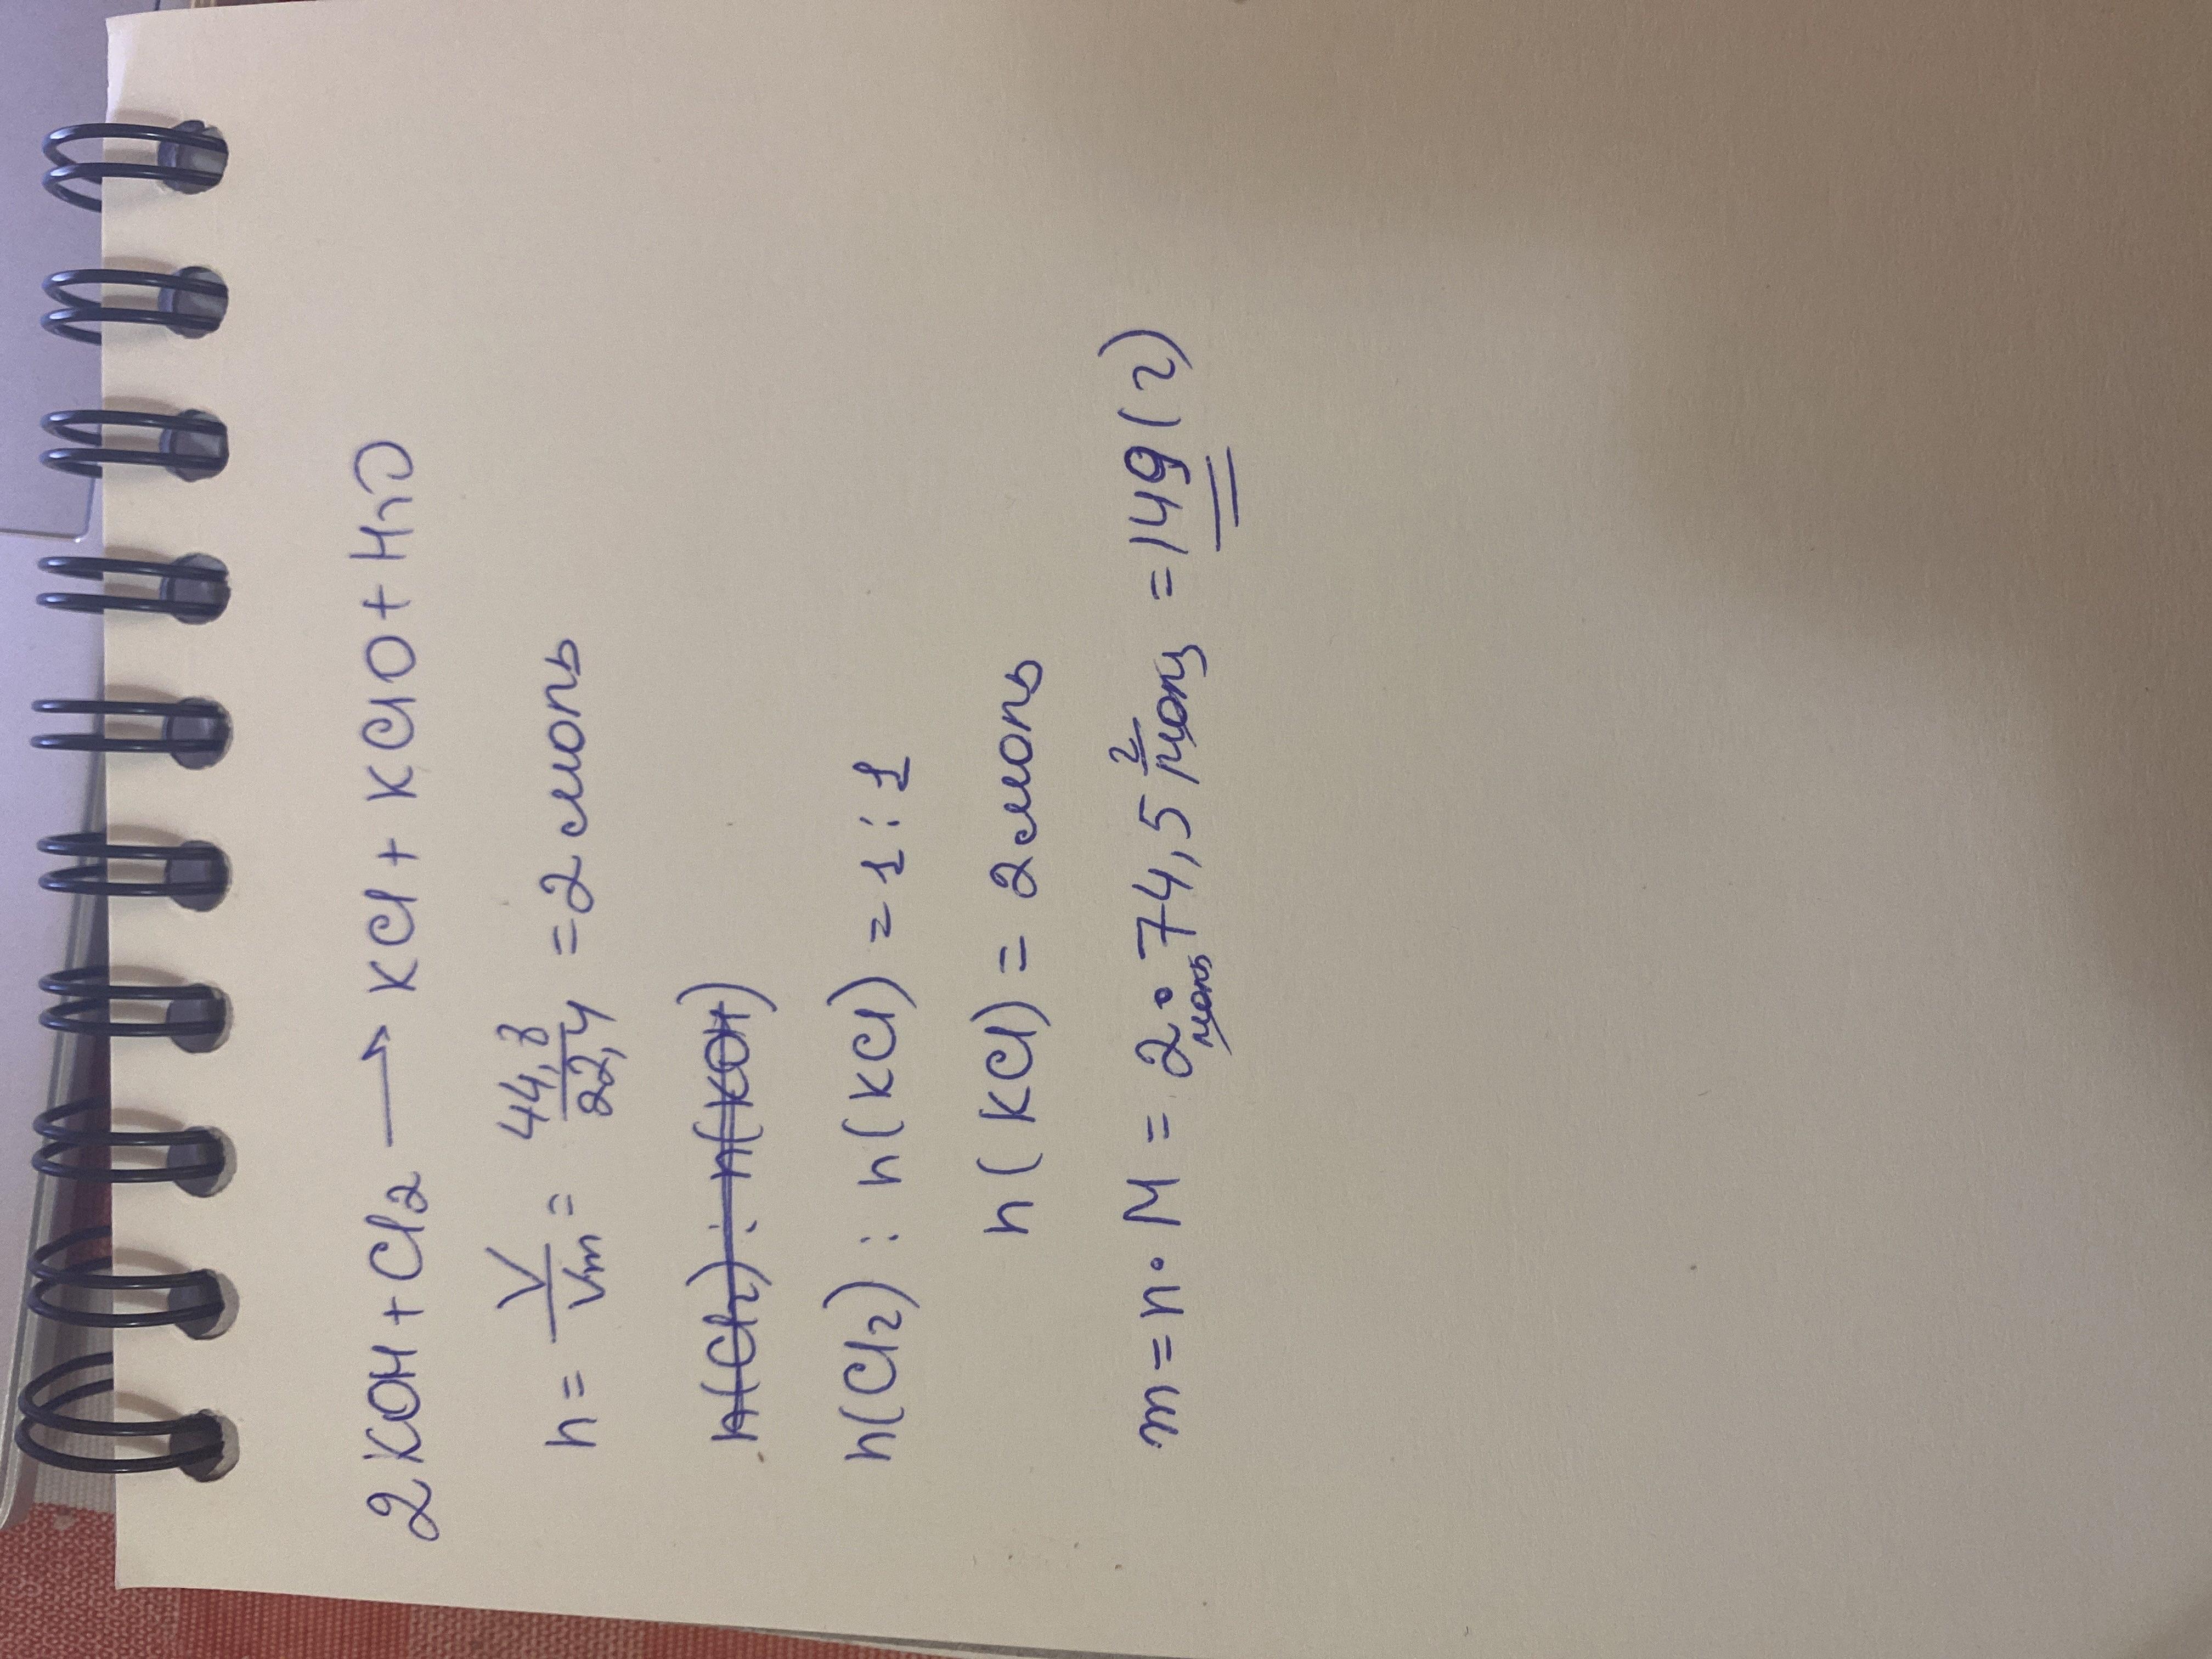 2KOH + Cl2 → KCl + KClO + H2O
n = V/Vm = 44,8/22,4 = 2 моль
n(Cl2) : n(KOH)
n(Cl2) : n(KCl) = 1 : 1
n(KCl) = 2 моль
m = n · M = 2 моль · 74,5 г/моль = 149 (г)